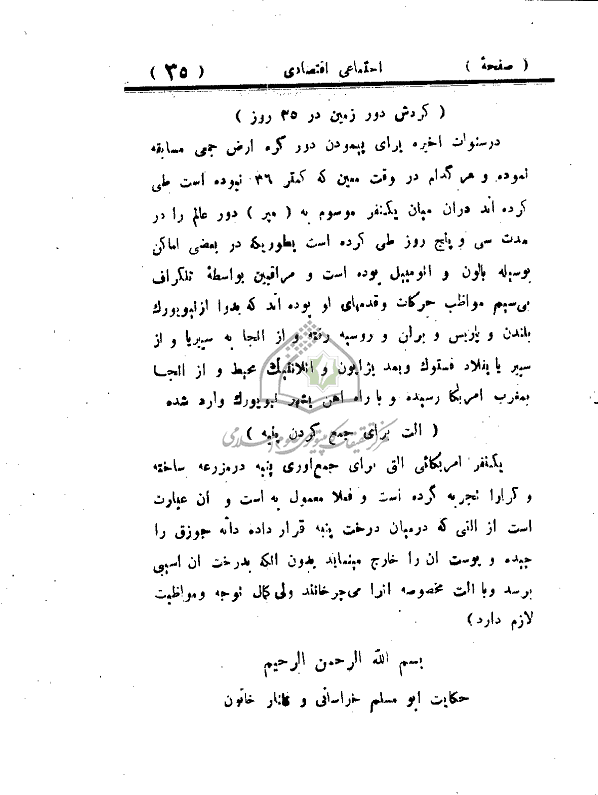 ( صفحهٔ ) اجتماعی اقتصادی ( ۳۵ )
( گردش دور زمین در ۳۵ روز )
درسنوات اخیره برای پیمودن دور کره ارض جمعی مسابقه
نموده و هر گدام در وقت معین که کمتر ۳۶ نبوده است طی
کرده اند دران میان یکنفر موسوم به ( میر ) دور عالم را در
مدت سی و پنج روز طی کرده است بطوریکه در بعضی اماکن
بوسیله بالون و اتومبیل بوده است و مراقبین بواسطهٔ تلگراف
بی‌سیم مواظب حرکات وقدمهای او بوده اند که بدوا ازنیویورك
بلندن و پاریس و برلن و روسیه رفته و از انجا به سیبریا و از
سیبریا بفلاد فستوك وبعد بژاپون و اتلانتیك محیط و از انجا
بمغرب امریکا رسیده و با راه اهن بشهر نیویورك وارد شده
( الت برای جمع کردن پنبه )
یکنفر امریکائی التی برای جمع‌اوری پنبه درمزرعه ساخته
و کرارا تجربه گرده است و فعلا معمول به است و ان عبارت
است از التی که درمیان درخت پنبه قرار داده دانه جوزق را
چیده و پوست ان را خارج مینماید بدون انکه بدرخت ان اسیبی
برسد وبا الت مخصوصه انرا می‌چرخانند ولی کمال توجه ومواظبت
لازم دارد)
بسم الله الرحمن الرحیم
حکایت ابو مسلم خراسانی و خاتون